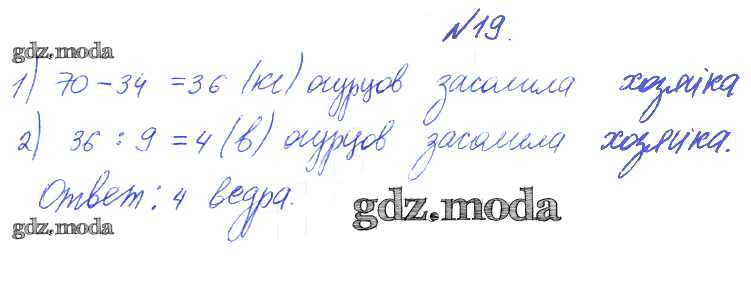 №19.
gdz.moda
1) 70-34 =36 (кг) огурцов засолила хозяйка
2) 36 : 9 =4 (в) огурцов засолила хозяйка.
Ответ: 4 ведра.
gdz.moda
gdz.moda